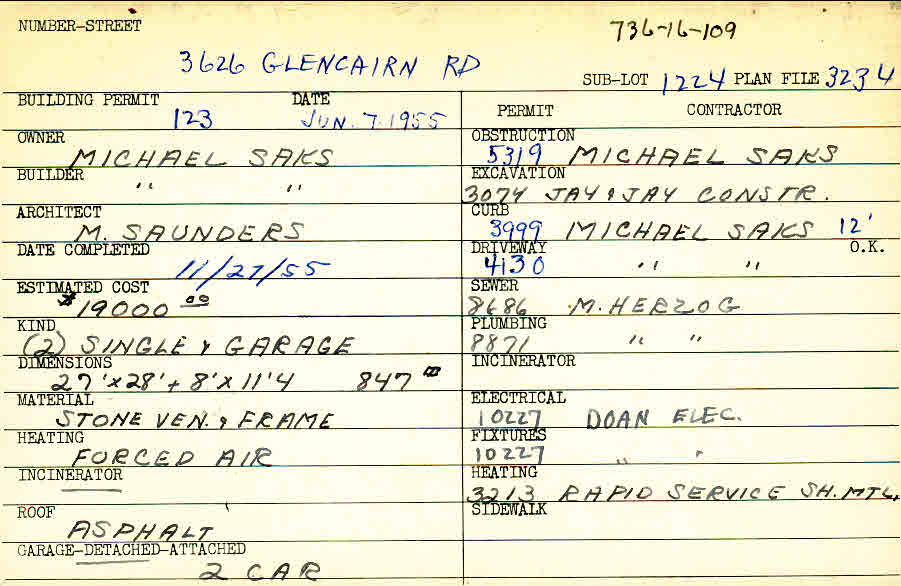 NUMBER-STREET 736-16-109
3626 GLENCAIRN RD
SUB-LOT 1224 PLAN FILE 3234
BUILDING PERMIT DATE
123 JUN. 7. 1955
OWNER
MICHAEL SAKS
BUILDER
" "
ARCHITECT
M. SAUNDERS
DATE COMPLETED
11/27/55
ESTIMATED COST
$19000 00
KIND
(2) SINGLE & GARAGE
DIMENSIONS
27'x28'+ 8'x11'4 847
MATERIAL
STONE VEN. & FRAME
HEATING
FORCED AIR
INCINERATOR
ROOF
ASPHALT
GARAGE-DETACHED-ATTACHED
2 CAR
PERMIT CONTRACTOR
OBSTRUCTION
5319 MICHAEL SAKS
EXCAVATION
3074 JAY & JAY CONSTR.
CURB
3999 MICHAEL SAKS 12'
DRIVEWAY O.K.
4130 " "
SEWER
8686 M. HERZOG
PLUMBING
8871 " "
INCINERATOR
ELECTRICAL
10227 DOAN ELEC.
FIXTURES
10227 " "
HEATING
3213 RAPID SERVICE SH. MTL.
SIDEWALK